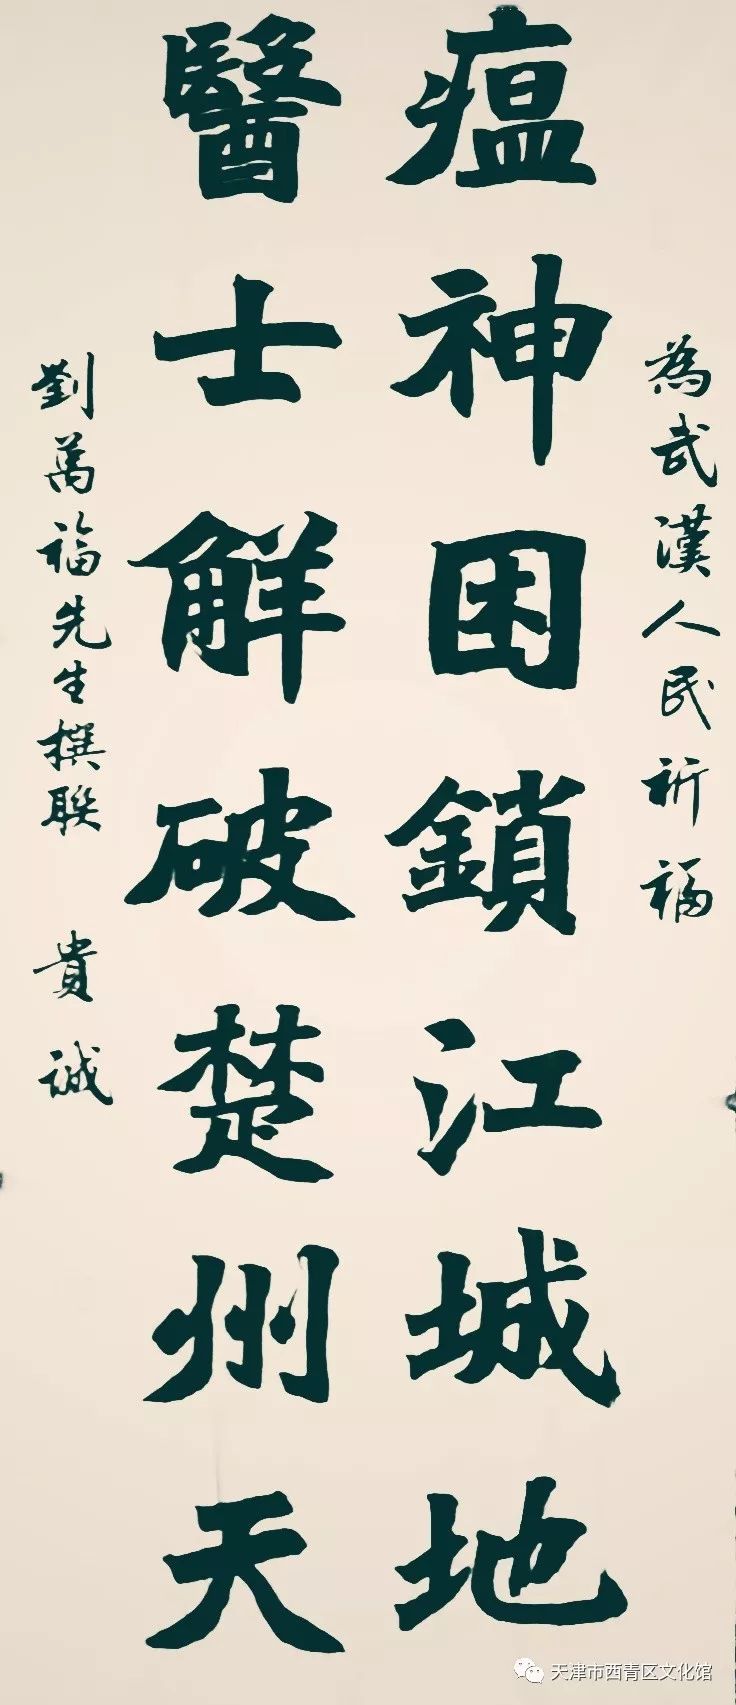 為武漢人民祈福
瘟神困鎖江城地
醫士解破楚州天
劉萬福先生撰聯 貴誠
天津市西青区文化馆